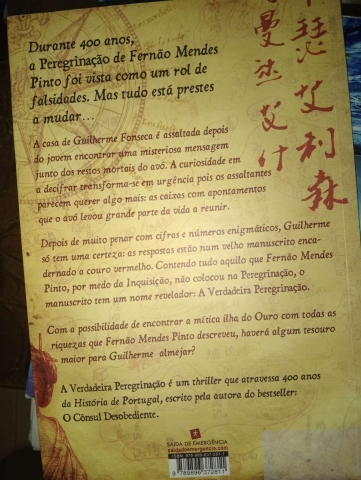 Durante 400 anos,
a Peregrinação de Fernão Mendes
Pinto foi vista como um rol de
falsidades. Mas tudo está prestes
a mudar...
A casa de Guilherme Fonseca é assaltada depois
do jovem encontrar uma misteriosa mensagem
junto dos restos mortais do avô. A curiosidade em
a decifrar transforma-se em urgência pois os assaltantes
parecem querer algo mais: as caixas com apontamentos
que o avô levou grande parte da vida a reunir.
Depois de muito penar com cifras e números enigmáticos, Guilherme
só tem uma certeza: as respostas estão num velho manuscrito enca-
dernado a couro vermelho. Contendo tudo aquilo que Fernão Mendes
Pinto, por medo da Inquisição, não colocou na Peregrinação, o
manuscrito tem um nome revelador: A Verdadeira Peregrinação.
Com a possibilidade de encontrar a mítica ilha do Ouro com todas as
riquezas que Fernão Mendes Pinto descreveu, haverá algum tesouro
maior para Guilherme almejar?
A Verdadeira Peregrinação é um thriller que atravessa 400 anos
da História de Portugal, escrito pela autora do bestseller:
O Cônsul Desobediente.
曼杰艾什
瑟艾利森
SAÍDA DE EMERGÊNCIA
saidadeemergencia.com
9 789896 372811